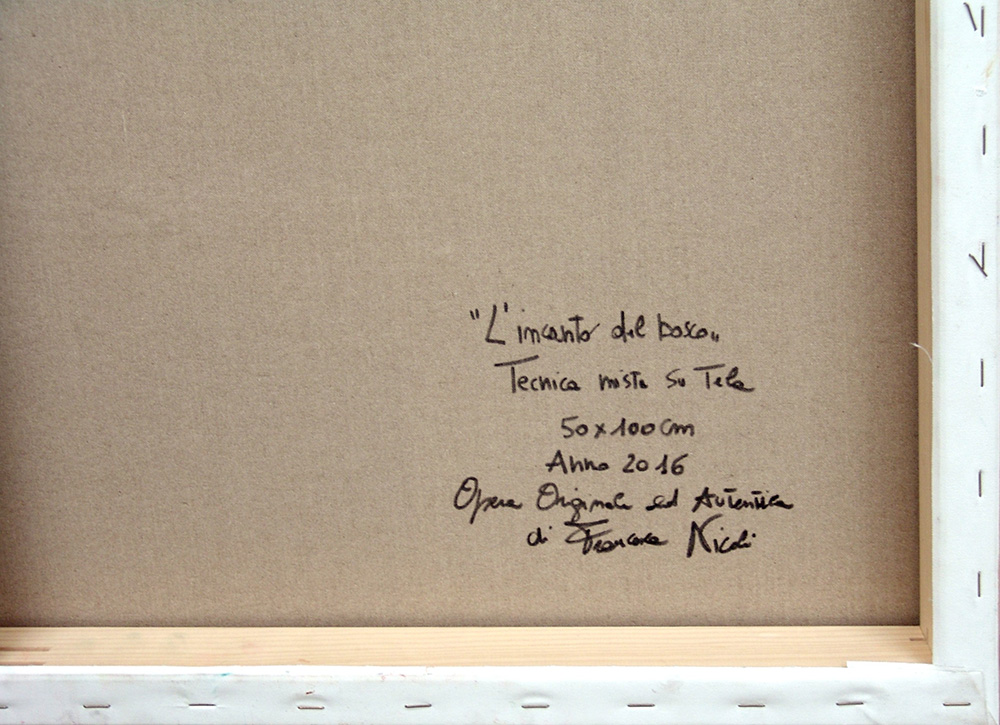 "L'incanto del bosco"
Tecnica mista su Tela
50x100cm
Anno 2016
Opera Originale ed Autentica
di Francesca Nicoli